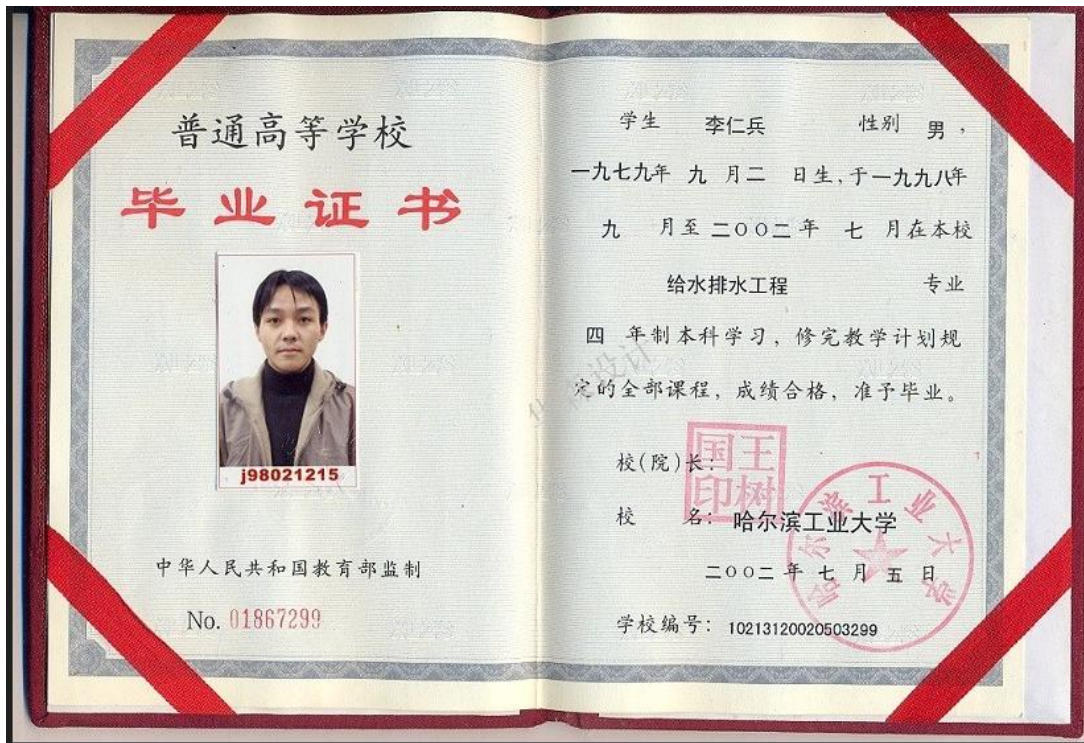 普通高等学校
毕业证书
j98021215
中华人民共和国教育部监制
No. 01867299
学生 李仁兵 性别 男，
一九七九年 九 月二 日生，于一九九八年
九 月至 二〇〇二年 七 月在本校
给水排水工程 专业
四 年制本科学习，修完教学计划规
定的全部课程，成绩合格，准予毕业。
校(院)长：
国王
印树
校 名：哈尔滨工业大学
哈尔滨工业大学
二〇〇二年七月五日
学校编号：10213120020503299